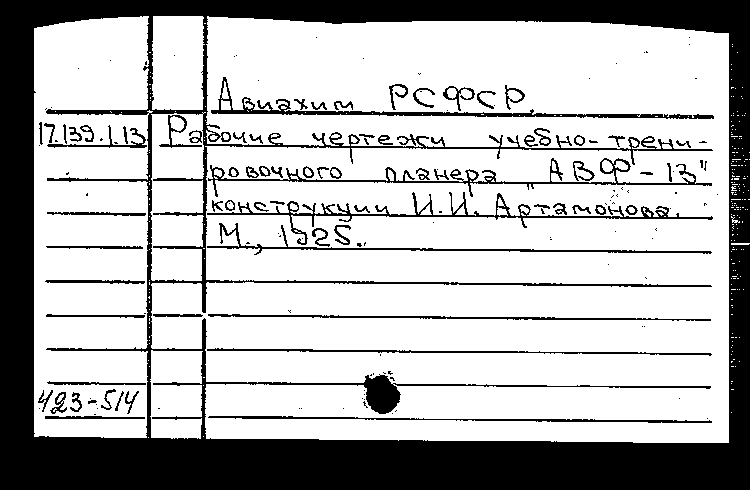 Авиахим РСФСР.
17.139.1.13 Рабочие чертежи учебно-трени-
ровочного планера "АВФ-13"
конструкции И.И. Артамонова.
М., 1925.
423-514